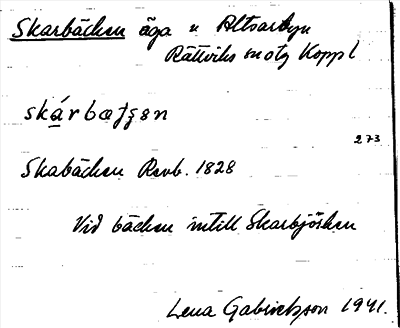 Skarbäcken äga u Altsarbyn
Rättviks sn otg Koppl
skárbæʃʒen
273
Skabäcken Revb. 1828
Vid bäcken intill Skarbjörken
Lena Gabrielsson 1941.